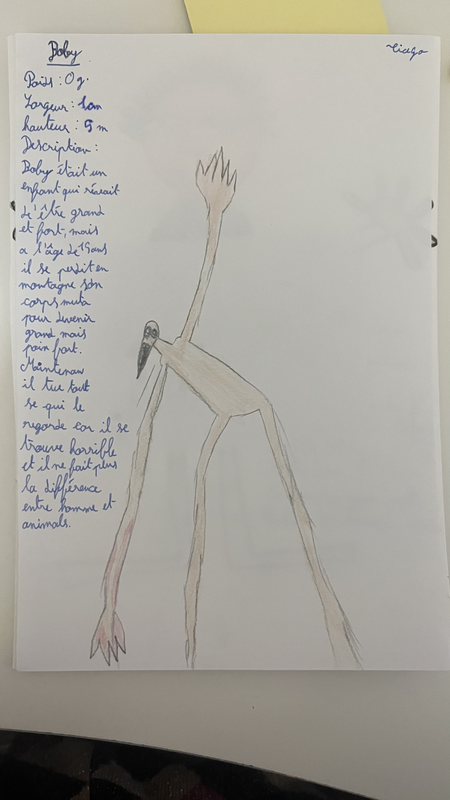 Boby
Tiago
Poids : 0 g.
Largeur : 1 m
hauteur : 5 m
Description :
Boby était un
enfant qui rêvait
de être grand
et fort, mais
a l'âge de 15 ans
il se perdit en
montagne son
corps muta
pour devenir
grand mais
poin fort.
Maintenan
il tue tout
se qui le
regorde car il se
trouve horrible
et il ne fait plus
la différence
entre homme et
animals.